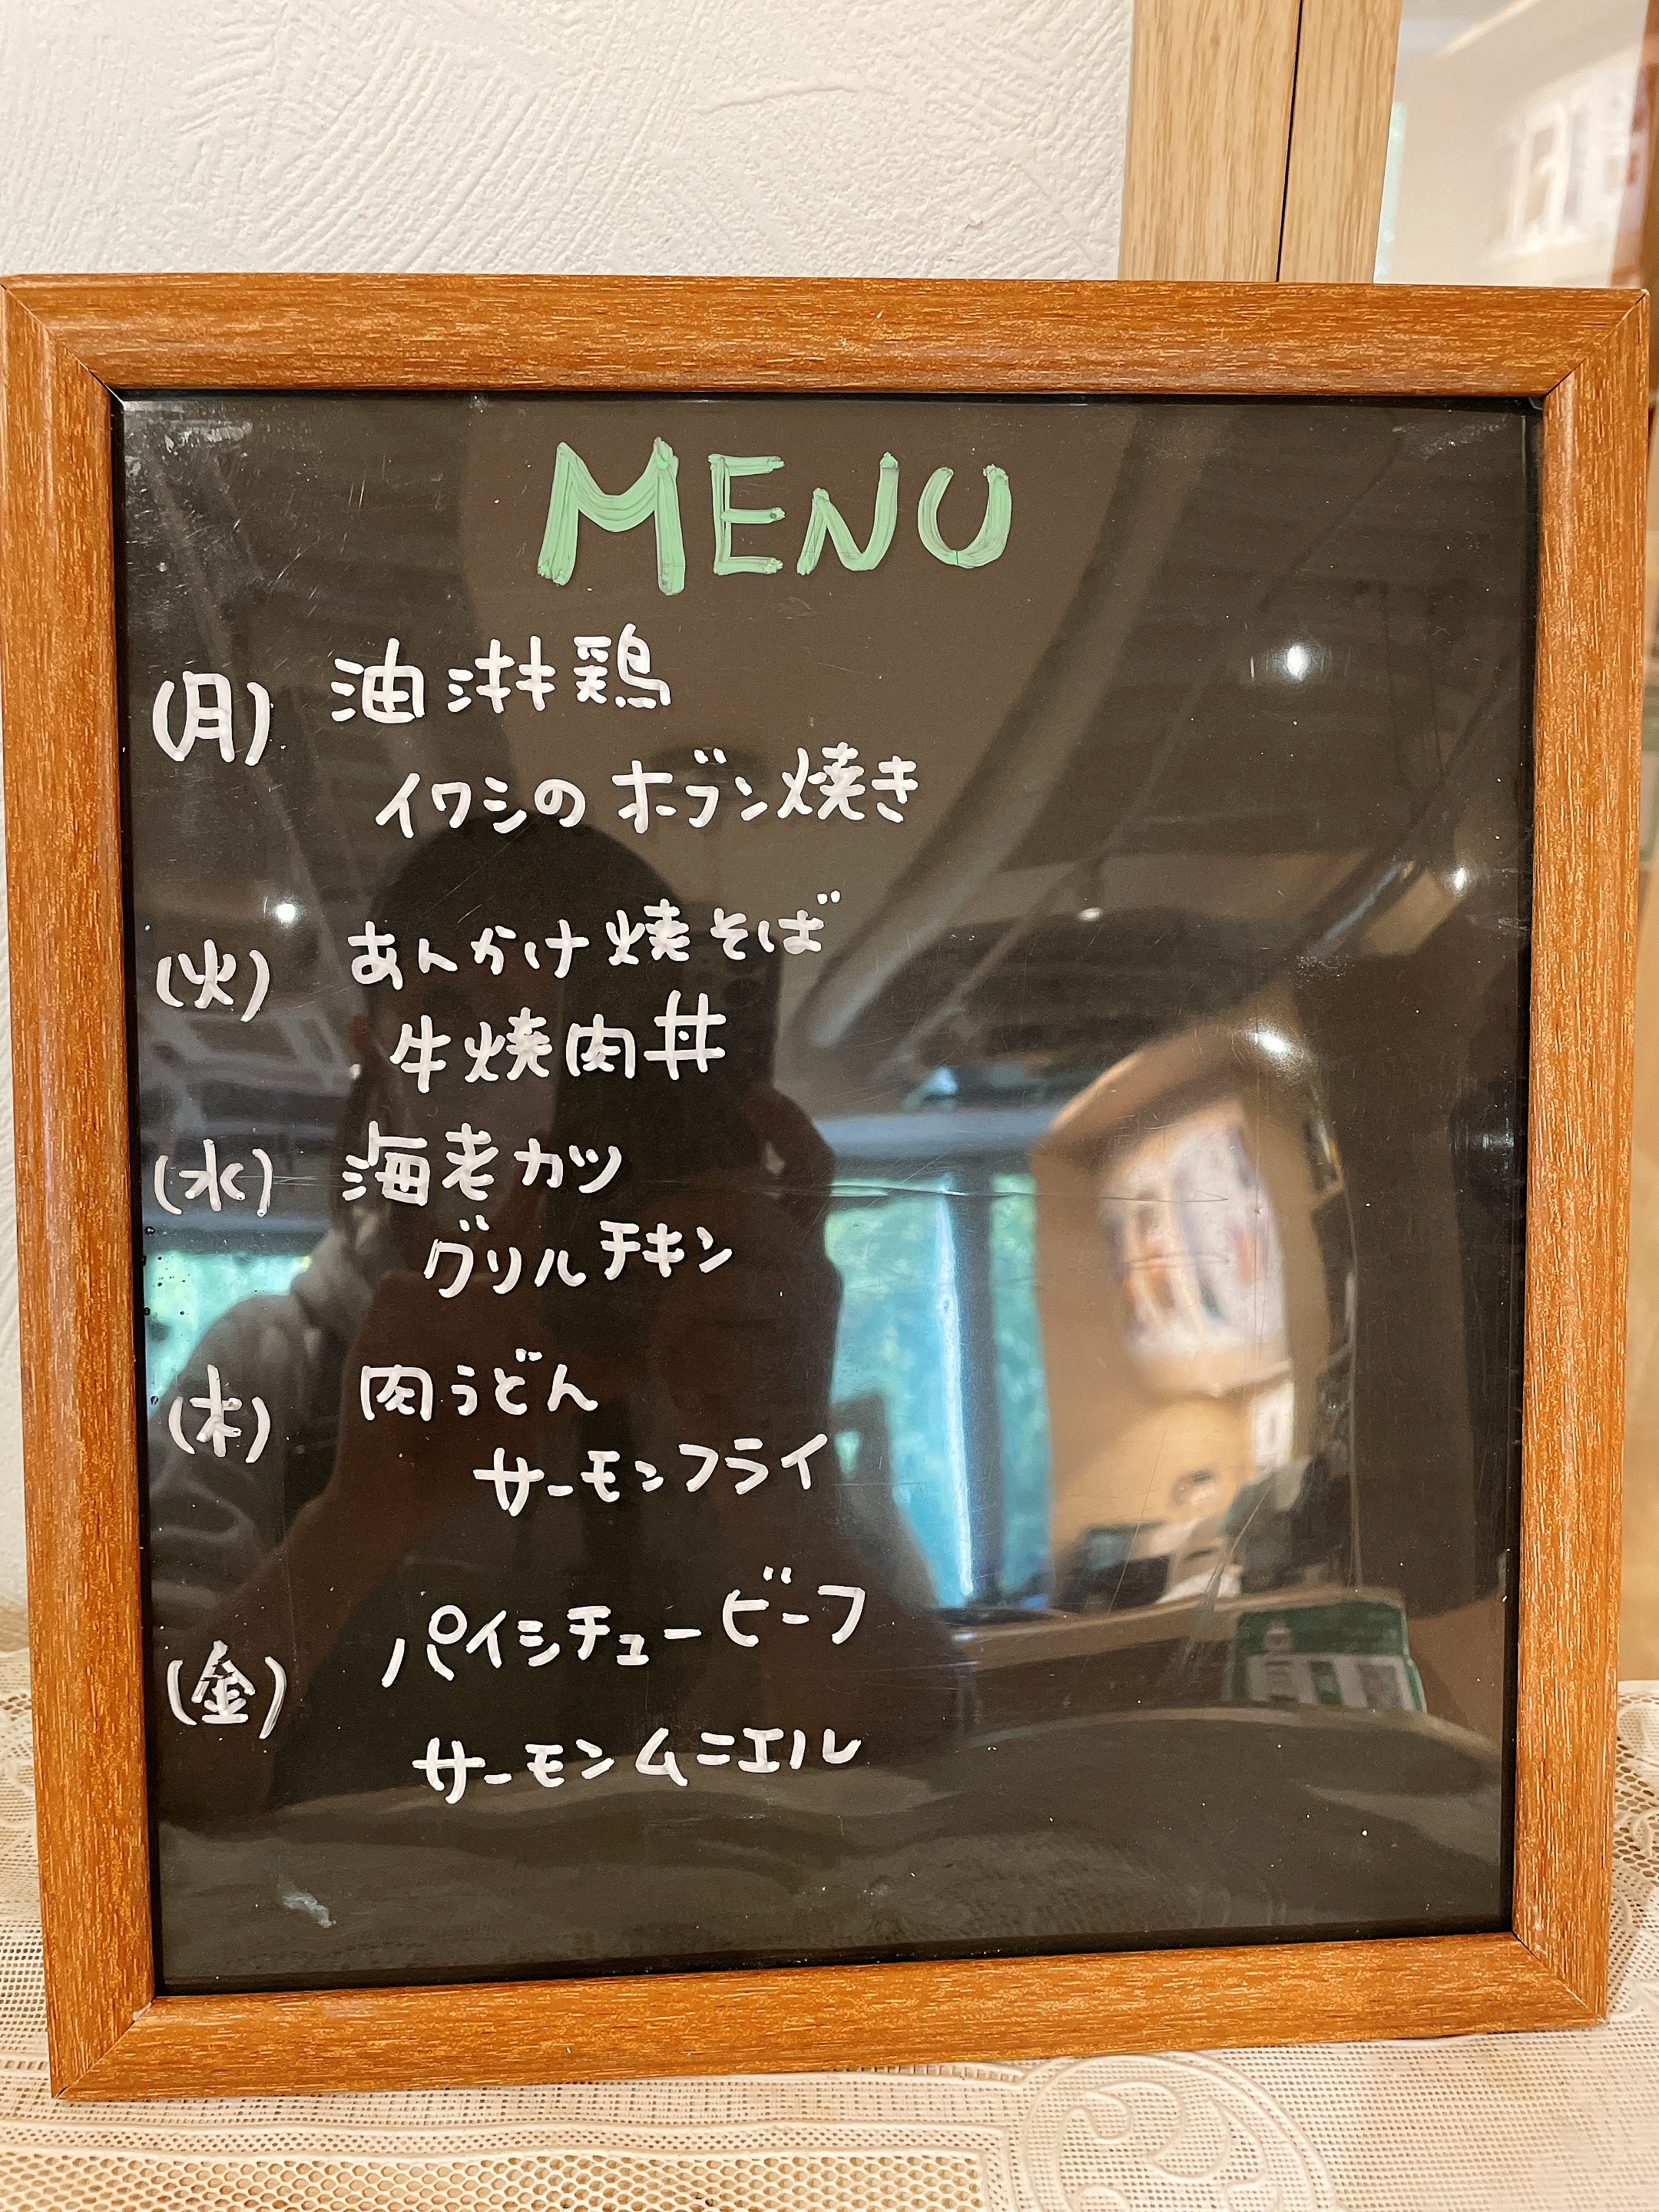 MENU
(月) 油淋鶏
イワシのオーブン焼き
(火) あんかけ焼そば
牛焼肉丼
(水) 海老カツ
グリルチキン
(木) 肉うどん
サーモンフライ
(金) パイシチュービーフ
サーモンムニエル